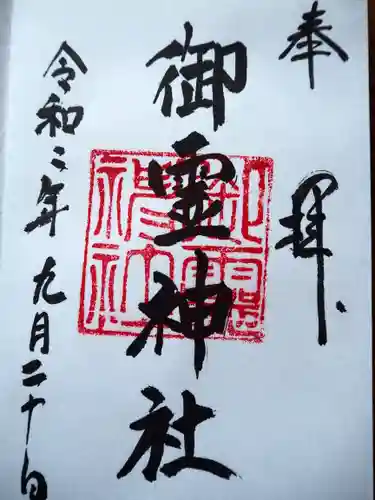 奉拝
御霊神社
御靈神社
令和二年九月二十日